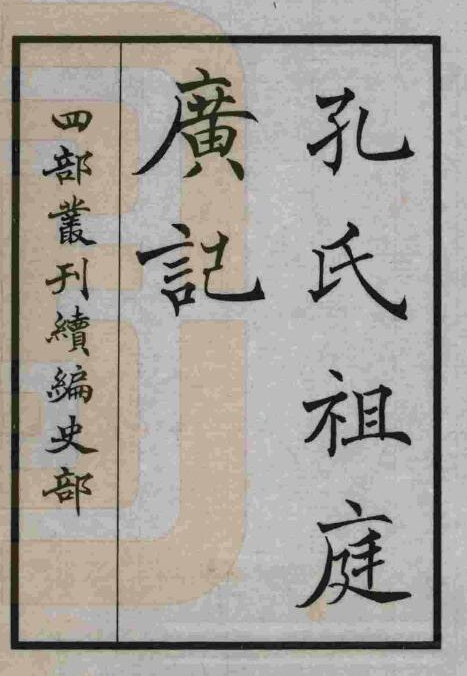 孔氏祖庭
廣記
四部叢刊續編史部